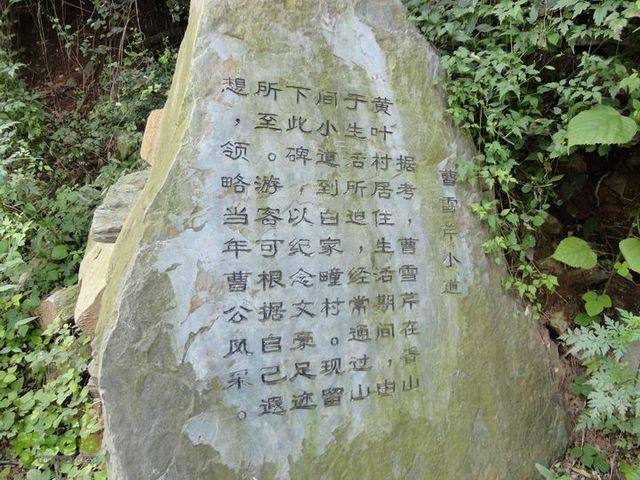 曹雪芹小道
据考，曹雪芹在香山
黄叶村居住生活期间，由
于生活所迫，经常通过山
间小道到白家疃村。现留
下此碑，以纪念文豪足迹
所至。游客可根据自己遐
想，领略当年曹公风采。